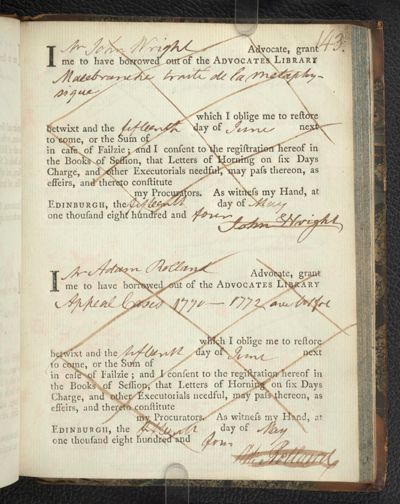 143.
I Mr John Wright Advocate, grant
me to have borrowed out of the ADVOCATES LIBRARY
Malebranche traite de la metaphy-
sique
which I oblige me to reſtore
betwixt and the fifteenth day of June next
to come, or the Sum of
in caſe of Failzie; and I conſent to the regiſtration hereof in
the Books of Seſſion, that Letters of Horning on ſix Days
Charge, and other Executorials needful, may paſs thereon, as
effeirs, and thereto conſtitute
my Procurators. As witneſs my Hand, at
EDINBURGH, the fifteenth day of May
one thouſand eight hundred and four
John Wright
I Mr Adam Rolland Advocate, grant
me to have borrowed out of the ADVOCATES LIBRARY
Appeal Cases 1770 — 1772
which I oblige me to reſtore
betwixt and the fifteenth day of June next
to come, or the Sum of
in caſe of Failzie; and I conſent to the regiſtration hereof in
the Books of Seſſion, that Letters of Horning on ſix Days
Charge, and other Executorials needful, may paſs thereon, as
effeirs, and thereto conſtitute
my Procurators. As witneſs my Hand, at
EDINBURGH, the fifteenth day of May
one thouſand eight hundred and four
Rolland